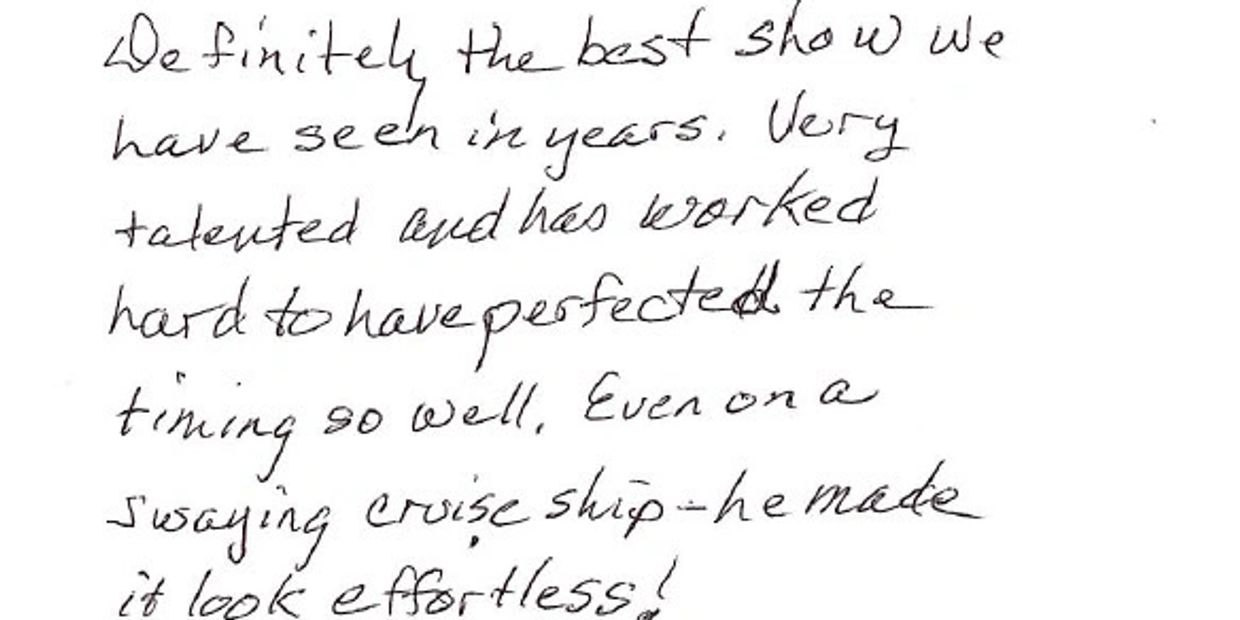 Definitely the best show we
have seen in years. Very
talented and has worked
hard to have perfected the
timing so well. Even on a
swaying cruise ship - he made
it look effortless!